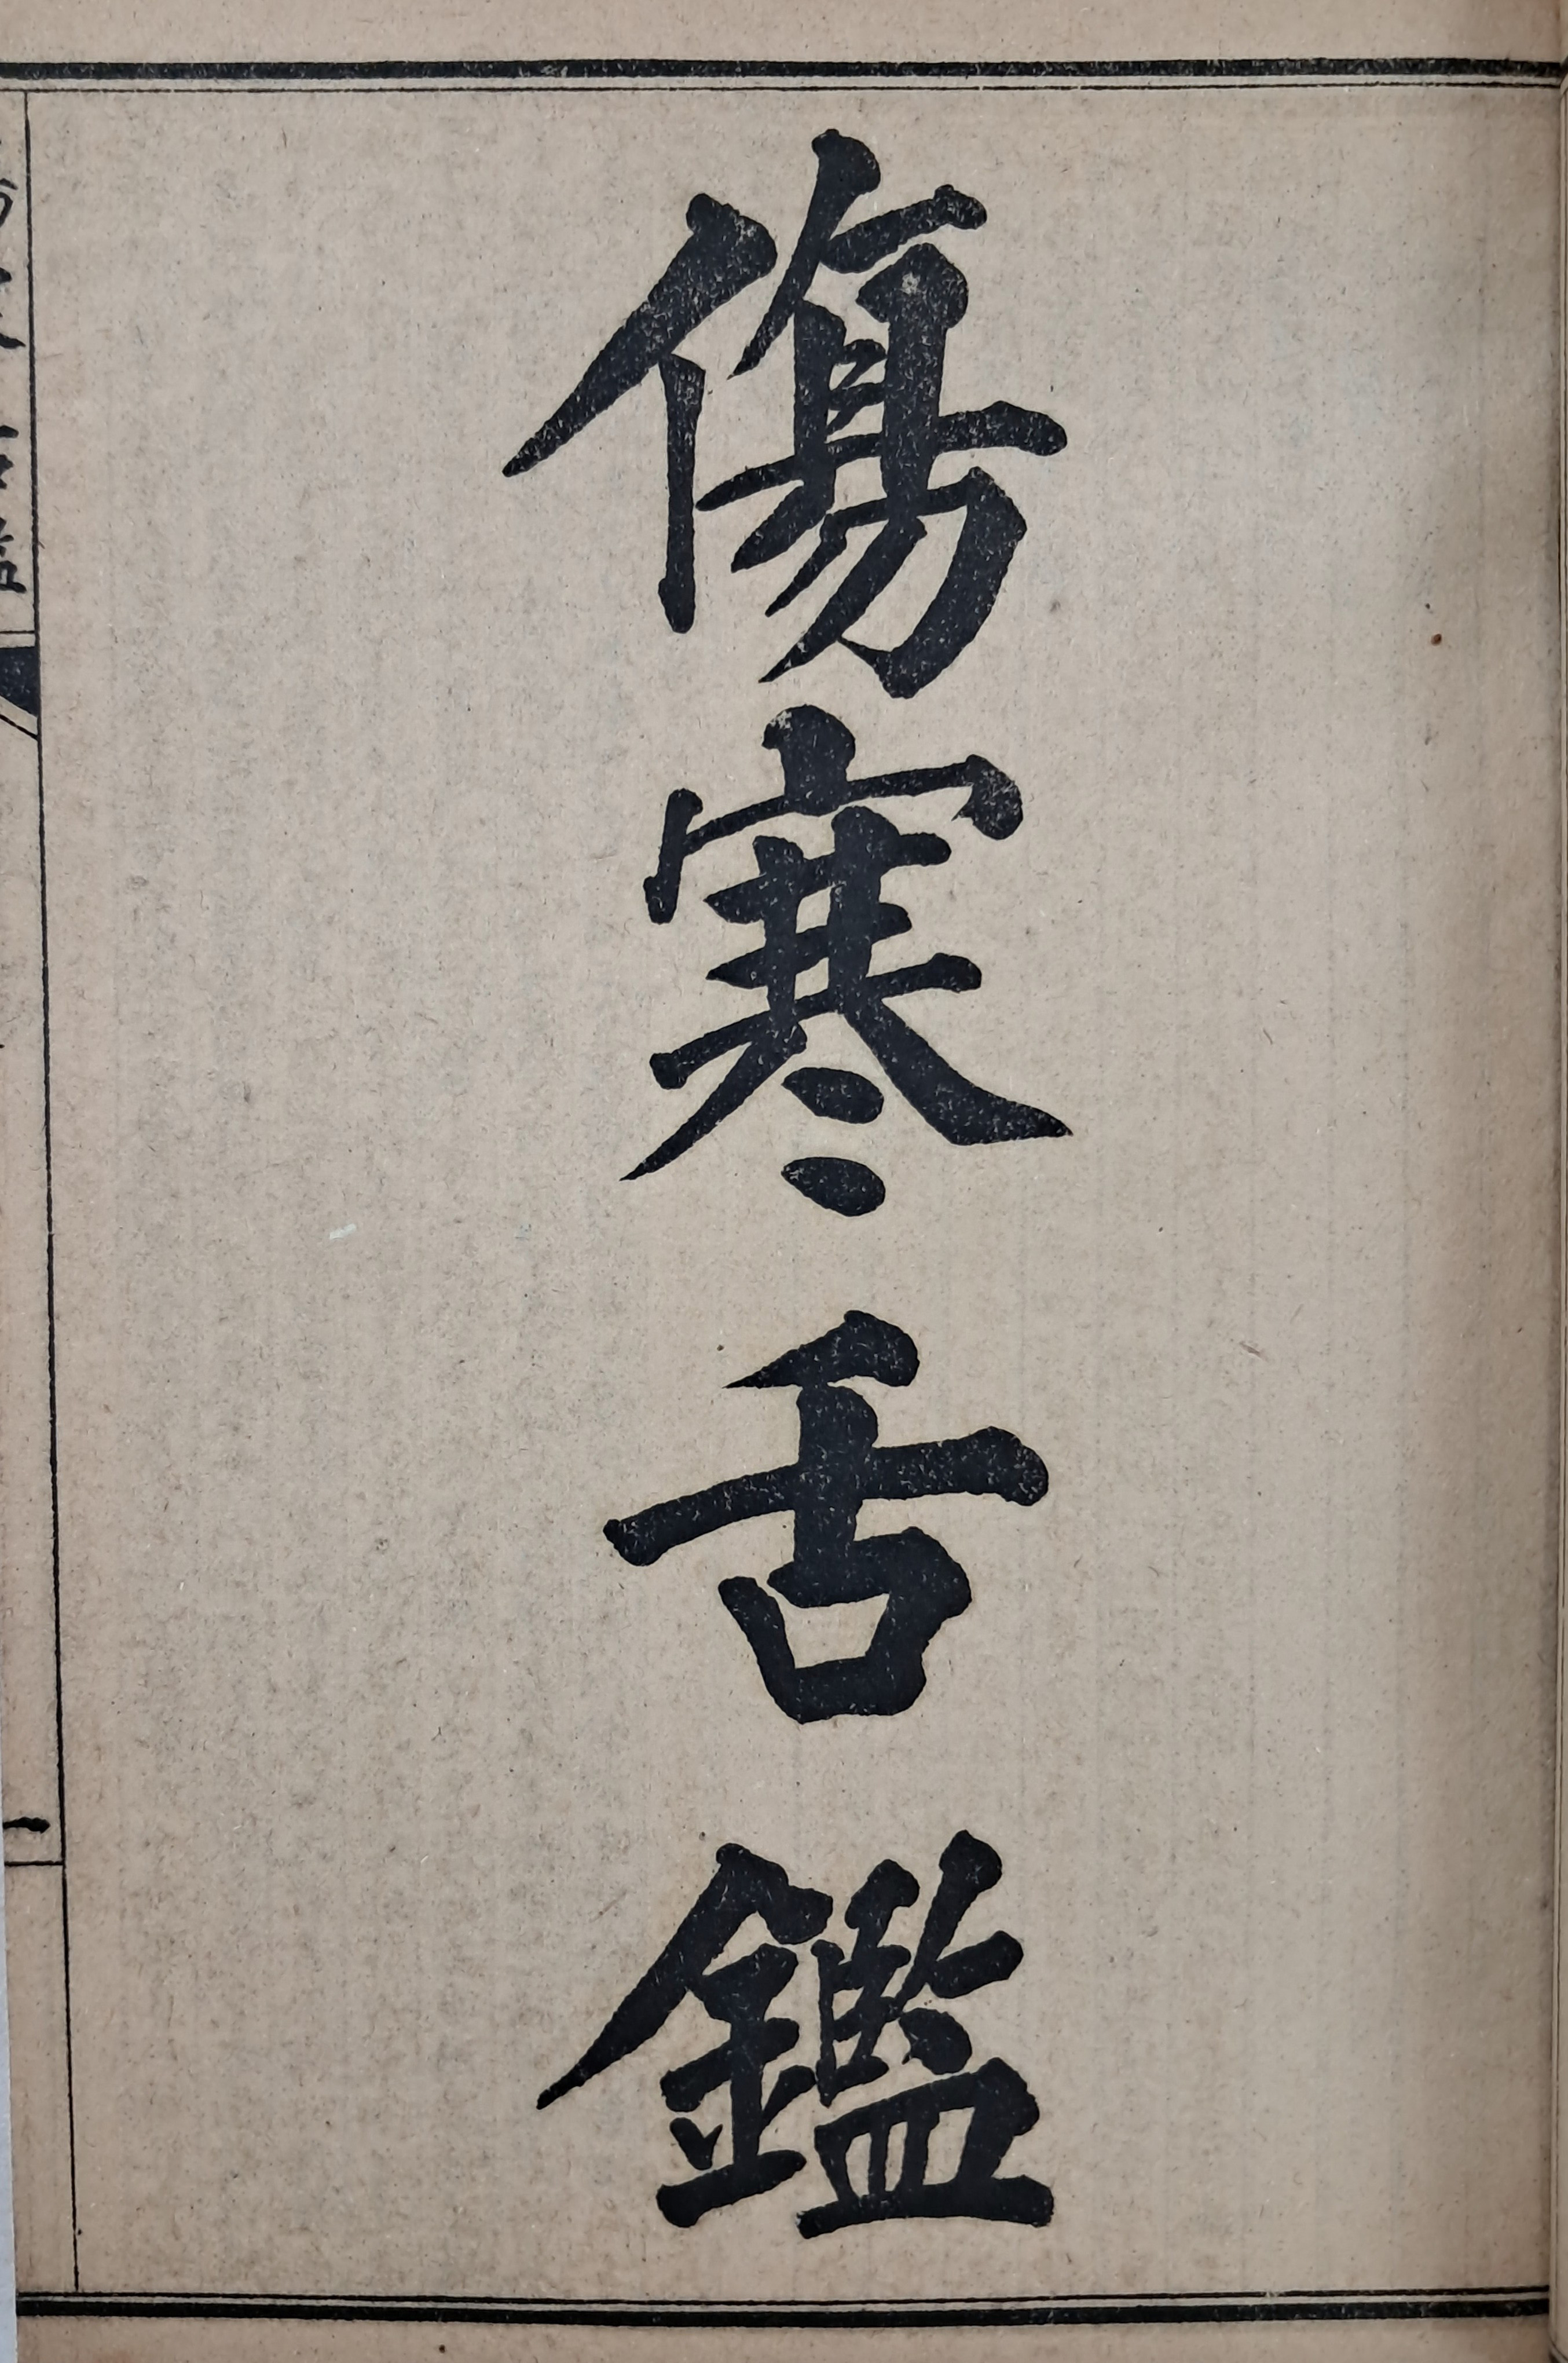 傷寒舌鑑
一